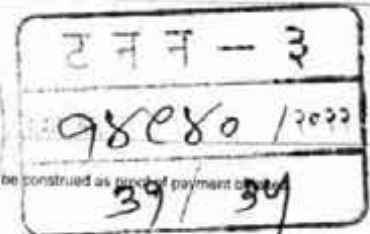 ट न न - ३
१४९४० / २०२२
be construed as proof of payment
३१ / ३५